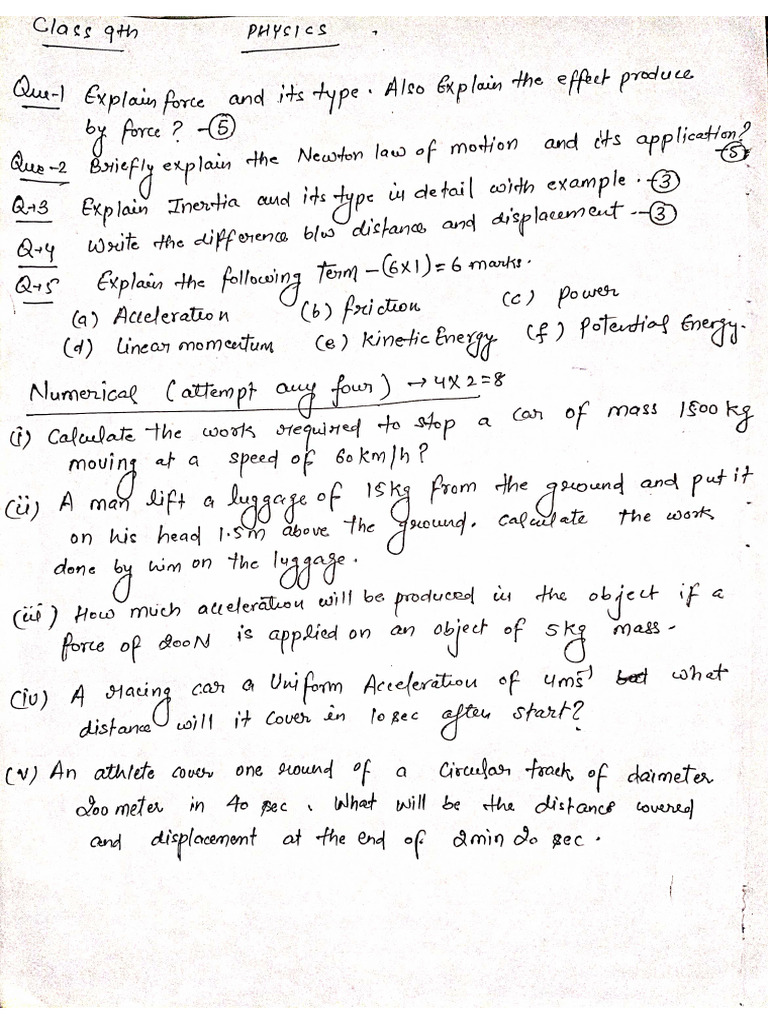 Class 9th PHYSICS
Que-1 Explain force and its type. Also Explain the effect produce
by force? -⑤
Que-2 Briefly explain the Newton law of motion and its application?
-⑤
Q→3 Explain Inertia and its type in detail with example. -③
Q→4 Write the difference b/w distance and displacement -③
Q→5 Explain the following Term - (6x1) = 6 marks.
(a) Acceleration (b) friction (c) Power
(d) Linear momentum (e) Kinetic Energy (f) Potential Energy.
Numerical (attempt any four) → 4x2=8
(i) Calculate the work required to stop a car of mass 1500 kg
moving at a speed of 60 km/h?
(ii) A man lift a luggage of 15kg from the ground and put it
on his head 1.5m above the ground. Calculate the work
done by him on the luggage.
(iii) How much acceleration will be produced in the object if a
force of 200N is applied on an object of 5kg mass.
(iv) A racing car a Uniform Acceleration of 4ms⁻¹ what
distance will it cover in 10 sec after start?
(v) An athlete cover one round of a Circular track of daimeter
200 meter in 40 sec. What will be the distance covered
and displacement at the end of 2min 20 sec.